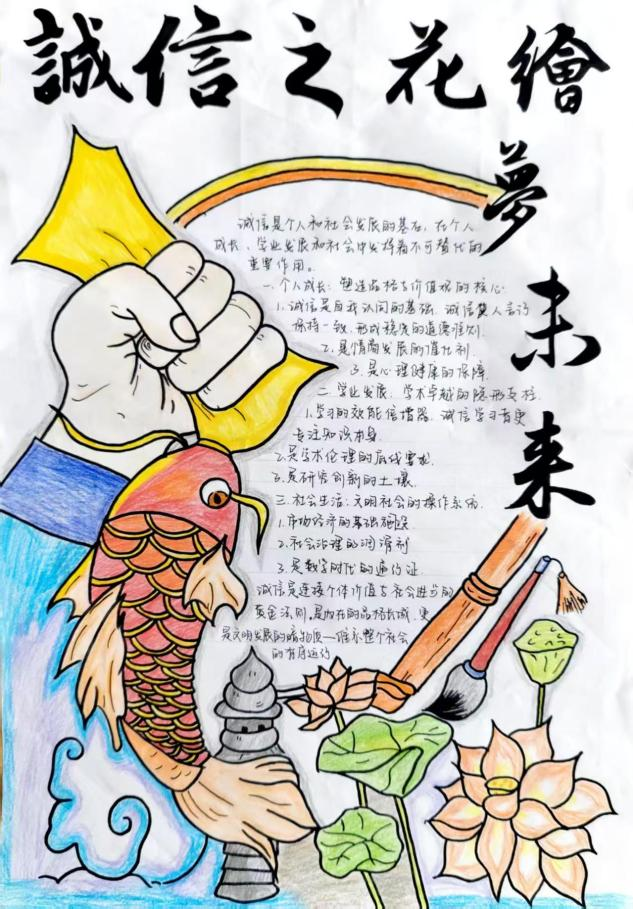 誠信之花繪
夢未来
诚信是个人和社会发展的基石，在个人
成长、学业发展和社会中发挥着不可替代的
重要作用。
一.个人成长：塑造品格与价值观的核心
1.诚信是自我认同的基础.诚信使人言行
保持一致.形成稳定的道德准则.
2.是情商发展的催化剂.
3.是心理健康的保障.
二.学业发展.学术卓越的隐形支柱.
1.学习的效能倍增器.诚信学习者更
专注知识本身.
2.是学术伦理的底线要求.
3.是研究创新的土壤.
三.社会生活：文明社会的操作系统.
1.市场经济的基础设施
2.社会治理的润滑剂
3.是数字时代的通行证.
诚信是连接个体价值与社会进步的
黄金法则.是内在的品格长城.更
是文明发展的暗物质—维系整个社会
的有序运行